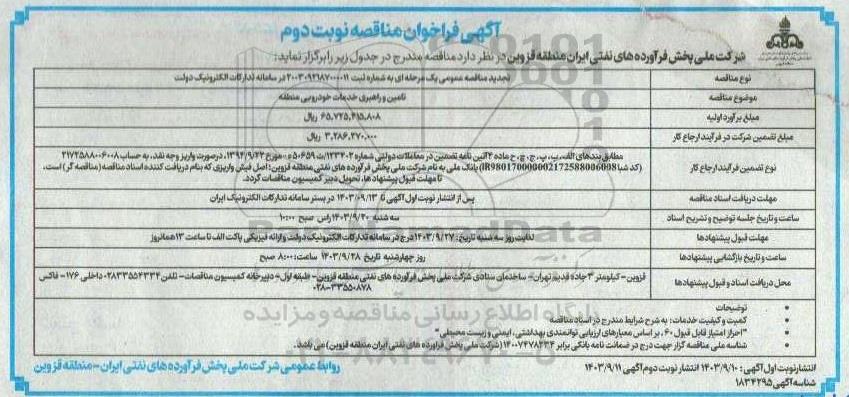 آگهی فراخوان مناقصه نوبت دوم
شرکت ملی پخش فرآورده های نفتی ایران منطقه قزوین در نظر دارد مناقصه مندرج در جدول زیر را برگزار نماید:
نوع مناقصه
تجدید مناقصه عمومی یک مرحله ای به شماره ثبت ۲۰۰۳۰۹۲۱۸۷۰۰۰۰۱۱ در سامانه تدارکات الکترونیک دولت
موضوع مناقصه
تامین و راهبری خدمات خودرویی منطقه
مبلغ برآورد اولیه
۶۵,۷۲۵,۴۱۵,۸۰۸ ریال
مبلغ تضمین شرکت در فرآیند ارجاع کار
۳,۲۸۶,۲۷۰,۰۰۰ ریال
نوع تضمین فرآیند ارجاع کار
مطابق بندهای الف، ب، پ، ج، چ، ح ماده ۴ آئین نامه تضمین در معاملات دولتی شماره ۱۲۳۴۰۲/ت ۵۰۶۵۹ ه مورخ ۱۳۹۴/۹/۲۲، درصورت واریز وجه نقد، به حساب ۲۱۷۲۵۸۸۰۰۶۰۰۸
(کد شبا IR980170000002172588006008) بانک ملی به نام شرکت ملی پخش فرآورده های نفتی منطقه قزوین؛ اصل فیش واریزی که بنام دریافت کننده اسناد مناقصه (مناقصه گر) است،
تا مهلت قبول پیشنهادها، تحویل دبیر کمیسیون مناقصات گردد.
مهلت دریافت اسناد مناقصه
پس از انتشار نوبت اول آگهی تا ۱۴۰۳/۰۹/۱۳ در بستر سامانه تدارکات الکترونیک ایران
ساعت و تاریخ جلسه توضیح و تشریح اسناد
سه شنبه ۱۴۰۳/۹/۲۰ راس صبح ۱۰:۰۰
مهلت قبول پیشنهادها
تدایت روز سه شنبه تاریخ: ۱۴۰۳/۹/۲۷ درج در سامانه تدارکات الکترونیک دولت و ارائه فیزیکی پاکت الف تا ساعت ۱۳ همانروز
ساعت و تاریخ بازگشایی پیشنهادها
روز چهارشنبه تاریخ ۱۴۰۳/۹/۲۸ ساعت: ۸:۰۰ صبح
محل دریافت اسناد و قبول پیشنهادها
قزوین- کیلومتر ۳ جاده قدیم تهران- ساختمان ستادی شرکت ملی پخش فرآورده های نفتی منطقه قزوین- طبقه اول- دبیرخانه کمیسیون مناقصات- تلفن ۰۲۸۳۳۵۵۴۳۳۴ داخلی ۱۷۶- فاکس
۰۲۸-۳۳۵۵۰۸۷۸
توضیحات
• کمیت و کیفیت خدمات: به شرح شرایط مندرج در اسناد مناقصه
• "احراز امتیاز قابل قبول ۶۰، بر اساس معیارهای ارزیابی توانمندی بهداشتی، ایمنی و زیست محیطی"
• شناسه ملی مناقصه گزار جهت درج در ضمانت نامه بانکی برابر ۱۴۰۰۷۴۷۸۲۳۴ (شرکت ملی پخش فرآورده های نفتی ایران منطقه قزوین) می باشد.
انتشار نوبت اول آگهی: ۱۴۰۳/۹/۱۰ انتشار نوبت دوم آگهی ۱۴۰۳/۹/۱۱
شناسه آگهی ۱۸۳۴۲۹۵
روابط عمومی شرکت ملی پخش فرآورده های نفتی ایران- منطقه قزوین